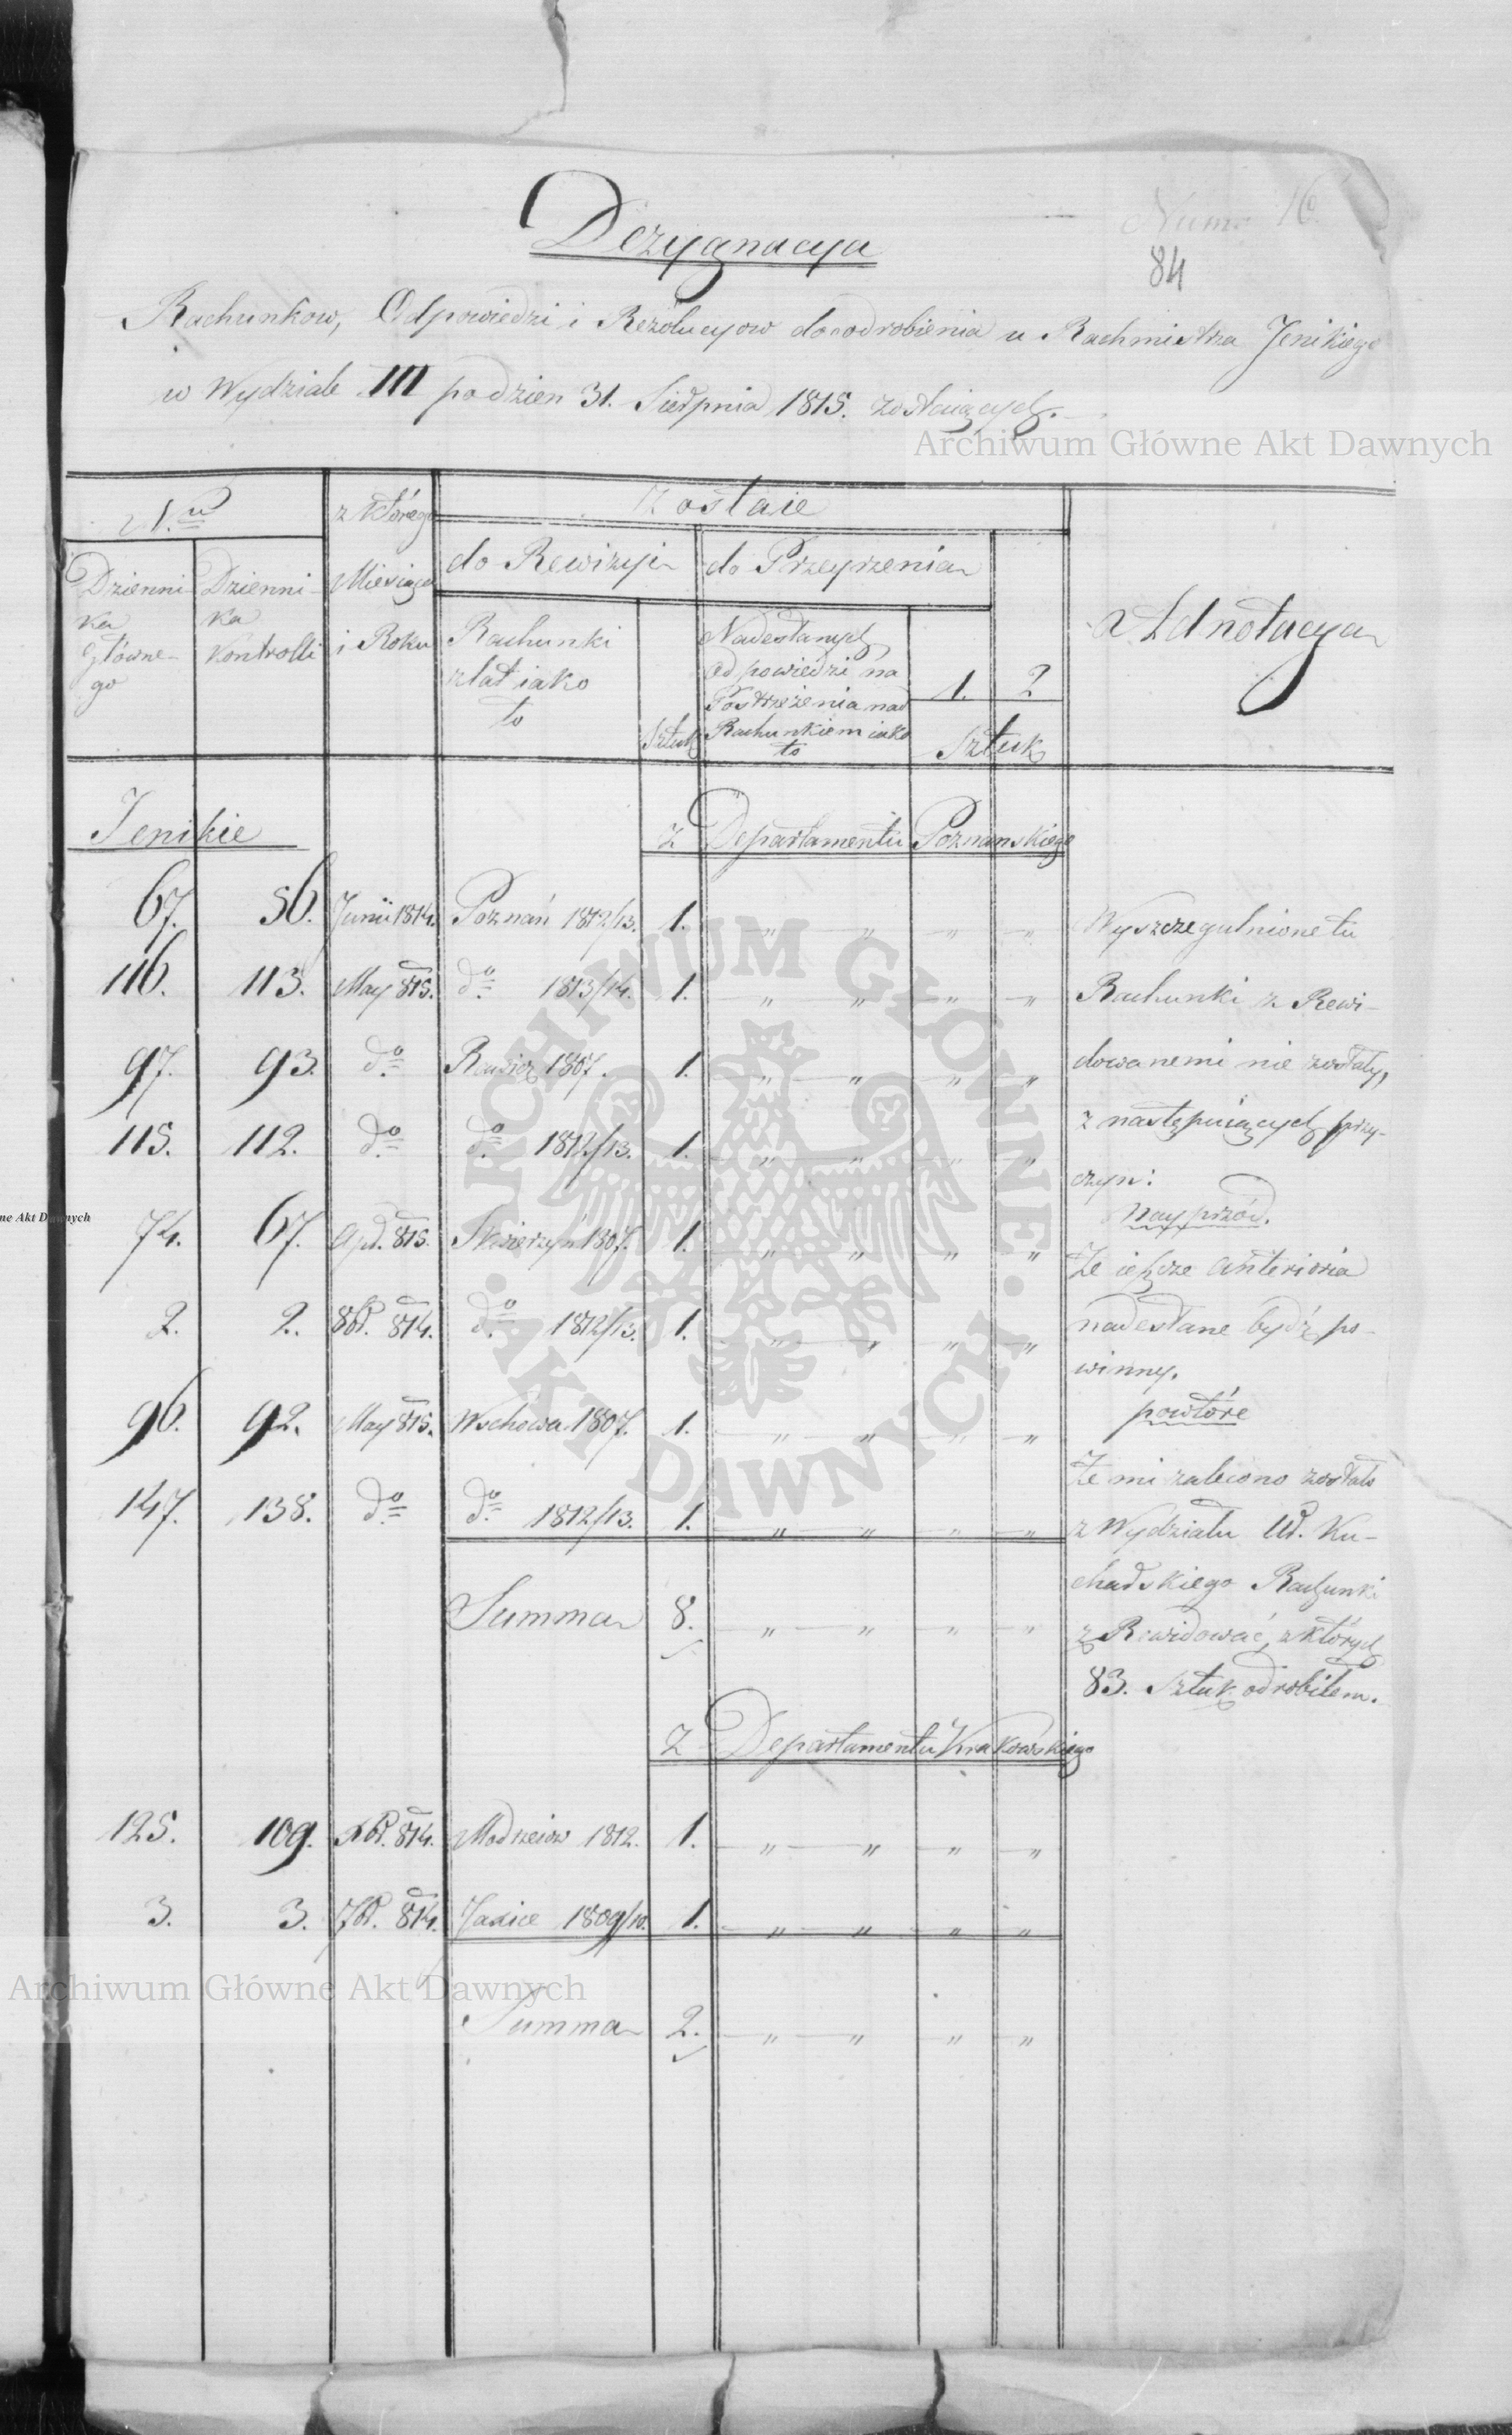 Numo 16.
84
Dezygnacya
Rachunkow, Odpowiedzi i Rezolucyow do odrobienia u Rachmistrza Jenikiego
w Wydziale III podzien 31. Sierpnia 1815. zostaiących.
Archiwum Główne Akt Dawnych
N.ro
z którego
Zostaie
Miesiąca
i Roku
do Rewizyi
do Przeyrzenia
Adnotacya
Dzienni-
ka
główne-
go
Dzienni-
ka
Kontrolli
Rachunki
z lat iako
to
Sztuk
Nadesłanych
Odpowiedzi na
Postrzeżenia nad
Rachunkiem iako
to
1. 2
Sztuk
Jenikie
z Departamentu Poznanskiego
67. 56. Junii 1814. Poznań 1812/13. 1. " " " " Wyszczegulnione tu
116. 113. May 815. do 1813/14. 1. " " " " Rachunki z Rewi-
97. 93. do Rawicz 1807. 1. " " " " dowanemi nie zostały,
115. 112. do do 1812/13. 1. " " " " z następuiących przy-
czyn:
Nayprzód.
74. 67. Apl. 815. Skwierzyń 1807. 1. " " " " Że ieszcze anteriora
2. 2. 8br. 814. do 1812/13. 1. " " " " nadesłane bydź po-
winny.
96. 92. May 815. Wschowa 1807. 1. " " " " powtóre
Że mi zalecono zostało
147. 138. do do 1812/13. 1. " " " " z Wydziału W. Ku-
charskiego Rachunki
Summa 8. " " " " zRewidować, z których
83. Sztuk odrobiłem.
z Departamentu Krakowskiego
125. 109. Xbr. 814. Modrzeiow 1812. 1. " " " "
3. 3. 7br. 814. Jaxice 1809/10. 1. " " " "
Archiwum Główne Akt Dawnych
Summa 2. " " " "
ne Akt Dawnych
ARCHIWUM GŁÓWNE · AKT DAWNYCH ·